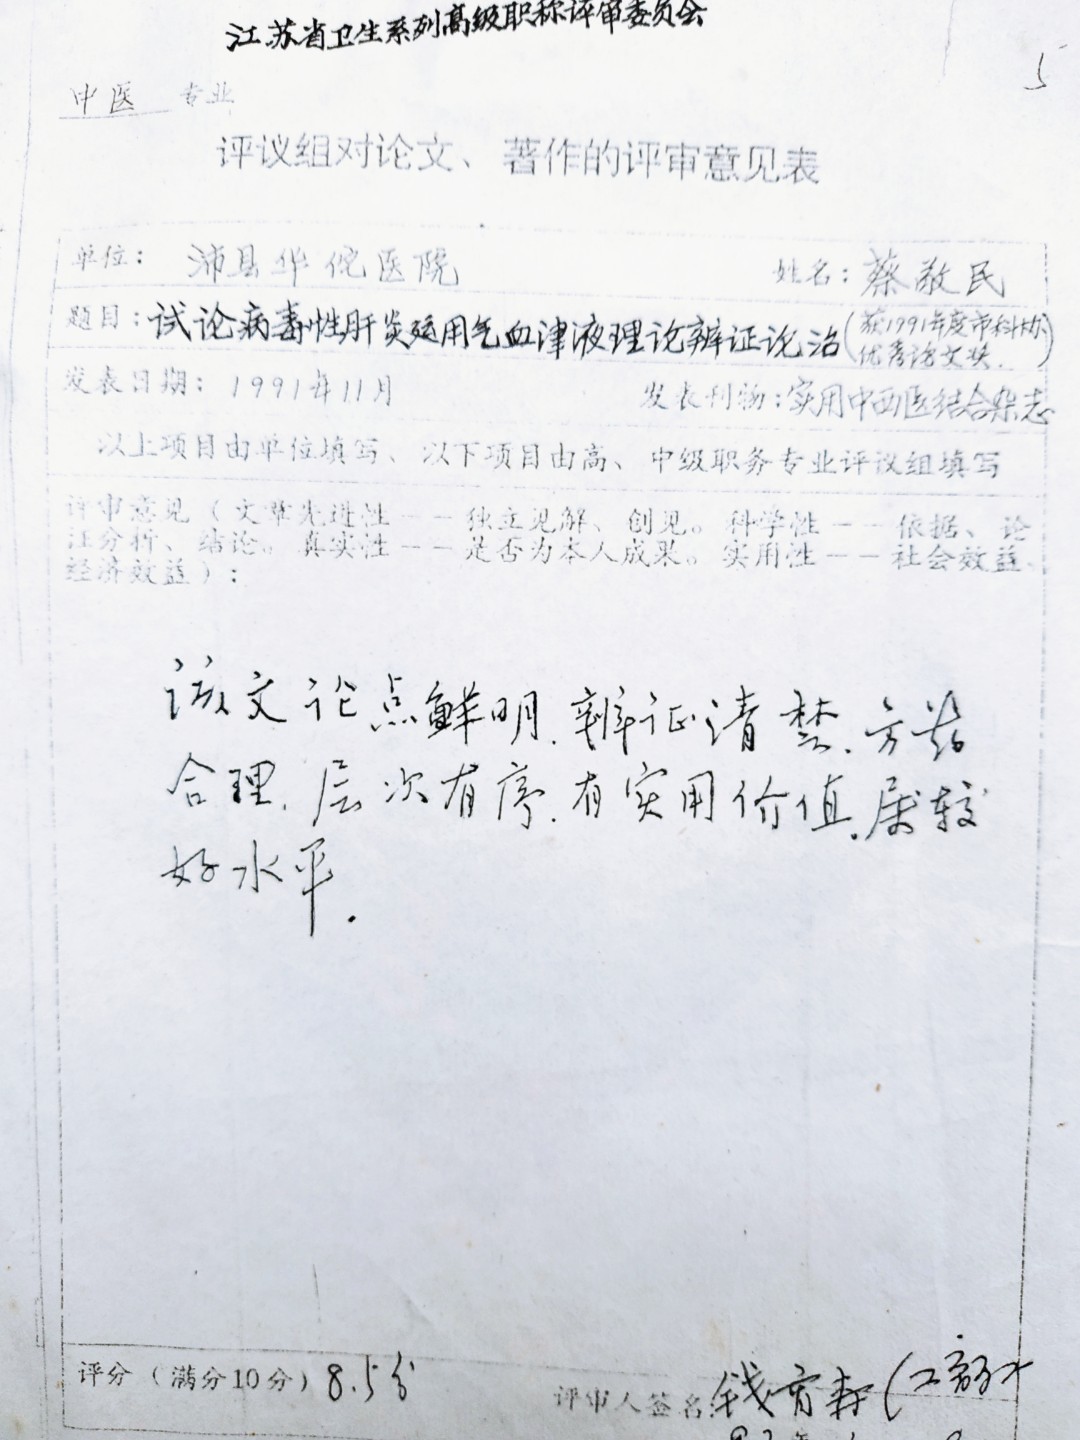 江苏省卫生系列高级职称评审委员会
5
中医 专业
评议组对论文、著作的评审意见表
单位： 沛县华佗医院 姓名：蔡敬民
题目：试论病毒性肝炎运用气血津液理论辨证论治(获1991年度市科协优秀论文奖.)
发表日期：1991年11月 发表刊物：实用中西医结合杂志
以上项目由单位填写、以下项目由高、中级职务专业评议组填写
评审意见（文章先进性——独立见解、创见。科学性——依据、论
证分析、结论。真实性——是否为本人成果。实用性——社会效益、
经济效益）：
该文论点鲜明、辨证清楚、方药
合理、层次有序、有实用价值、属较
好水平.
评分（满分10分）8.5分
评审人签名：钱